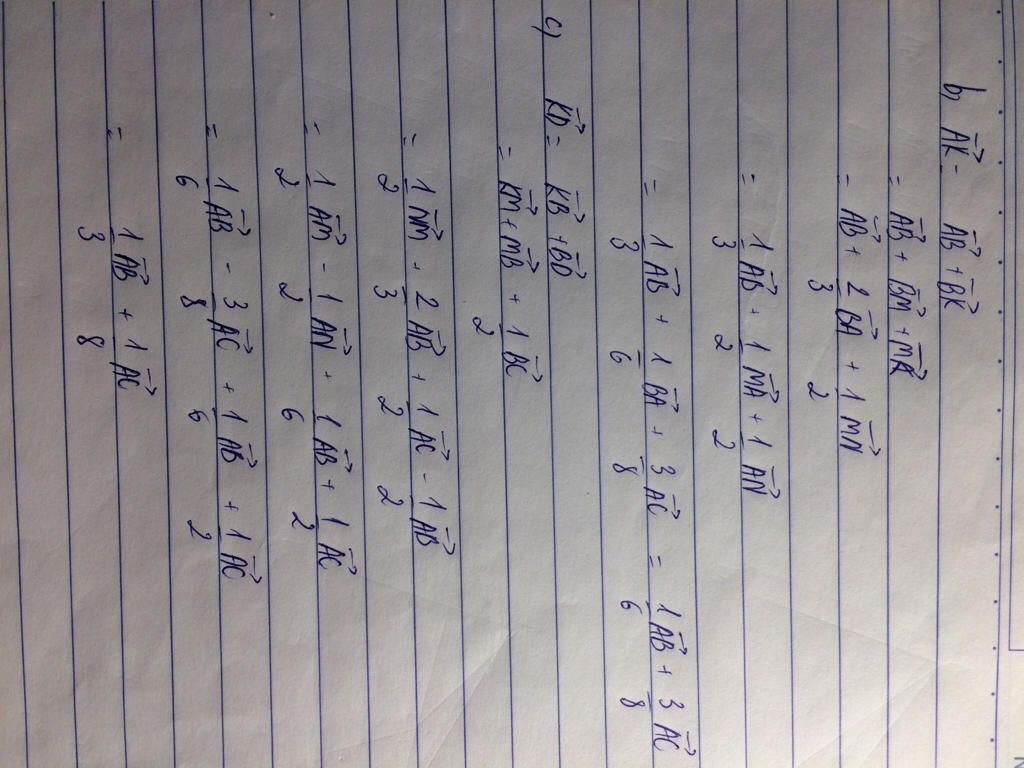 b) $\overrightarrow{AK} = \overrightarrow{AB} + \overrightarrow{BK}$
$= \overrightarrow{AB} + \overrightarrow{BM} + \overrightarrow{MK}$
$= \overrightarrow{AB} + \frac{2}{3}\overrightarrow{BA} + \frac{1}{2}\overrightarrow{MN}$
$= \frac{1}{3}\overrightarrow{AB} + \frac{1}{2}\overrightarrow{MA} + \frac{1}{2}\overrightarrow{AN}$
$= \frac{1}{3}\overrightarrow{AB} + \frac{1}{6}\overrightarrow{BA} + \frac{3}{8}\overrightarrow{AC} = \frac{1}{6}\overrightarrow{AB} + \frac{3}{8}\overrightarrow{AC}$
c) $\overrightarrow{KD} = \overrightarrow{KB} + \overrightarrow{BD}$
$= \overrightarrow{KM} + \overrightarrow{MB} + \frac{1}{2}\overrightarrow{BC}$
$= \frac{1}{2}\overrightarrow{NM} + \frac{2}{3}\overrightarrow{AB} + \frac{1}{2}\overrightarrow{AC} - \frac{1}{2}\overrightarrow{AB}$
$= \frac{1}{2}\overrightarrow{AM} - \frac{1}{2}\overrightarrow{AN} + \frac{1}{6}\overrightarrow{AB} + \frac{1}{2}\overrightarrow{AC}$
$= \frac{1}{6}\overrightarrow{AB} - \frac{3}{8}\overrightarrow{AC} + \frac{1}{6}\overrightarrow{AB} + \frac{1}{2}\overrightarrow{AC}$
$= \frac{1}{3}\overrightarrow{AB} + \frac{1}{8}\overrightarrow{AC}$